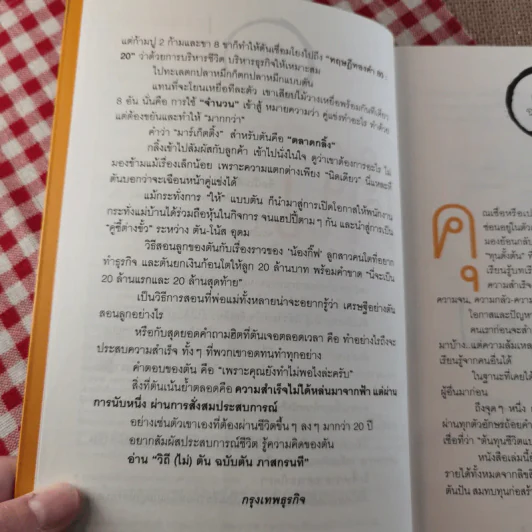 แต่ก้ามปู 2 ก้ามและขา 8 ขาก็ทำให้ตันเชื่อมโยงไปถึง "ทฤษฎีพองคำ 80 :
20" ว่าด้วยการบริหารชีวิต บริหารธุรกิจให้เหมาะสม
ไปทะเลตกปลาหมึกก็ตกปลาหมึกแบบตัน
แทนที่จะโยนเหยื่อทีละตัว เขาเสียบไม้วางเหยื่อพร้อมกันทีเดียว
8 อัน นั่นคือ การใช้ "จำนวน" เข้าสู้ หมายความว่า คู่แข่งทำอะไร ทำด้วย
แต่ต้องขยันและทำให้ "มากกว่า"
คำว่า "มาร์เก็ตติ้ง" สำหรับตันคือ "ตลาดกลิ้ง"
กลิ้งเข้าไปสัมผัสกับลูกค้า เข้าไปนั่งในใจ ดูว่าเขาต้องการอะไร ไม่
มองข้ามแม้เรื่องเล็กน้อย เพราะความแตกต่างเพียง "นิดเดียว" นี่แหละที่
ตันบอกว่าจะเฉือนหน้าคู่แข่งได้
แม้กระทั่งการ "ให้" แบบตัน ก็นำมาสู่การเปิดโอกาสให้พนักงาน
กระทั่งแม่บ้านได้ร่วมถือหุ้นในกิจการ จนแฮปปี้ตามๆ กัน และนำสู่การเป็น
"คู่ซี้ต่างขั้ว" ระหว่าง ตัน-โน้ส อุดม
วิธีสอนลูกของตันกับเรื่องราวของ 'น้องกิ๊ฟ' ลูกสาวคนโตที่อยาก
ทำธุรกิจ และตันยกเงินก้อนโตให้ลูก 20 ล้านบาท พร้อมคำขาด "นี่จะเป็น
20 ล้านแรกและ 20 ล้านสุดท้าย"
เป็นวิธีการสอนที่พ่อแม่ทั้งหลายน่าจะอยากรู้ว่า เศรษฐีอย่างตัน
สอนลูกอย่างไร
หรือกับสุดยอดคำถามฮิตที่ตันเจอตลอดเวลา คือ ทำอย่างไรถึงจะ
ประสบความสำเร็จ ทั้งๆ ที่พวกเขาอดทนทำทุกอย่าง
คำตอบของตัน คือ "เพราะคุณยังทำไม่พอไงล่ะครับ"
สิ่งที่ตันเน้นย้ำตลอดคือ ความสำเร็จไม่ได้หล่นมาจากฟ้า แต่ผ่าน
การนับหนึ่ง ผ่านการสั่งสมประสบการณ์
อย่างเช่นตัวเขาเองที่ต้องผ่านชีวิตขึ้นๆ ลงๆ มากว่า 20 ปี
อยากสัมผัสประสบการณ์ชีวิต รู้ความคิดของตัน
อ่าน "วิถี (ไม่) ตัน ฉบับตัน ภาสกรนที"
กรุงเทพธุรกิจ
คุณเชื่อหรือเป
ซ่อนอยู่ในตัว
มองย้อนกลับ
"ทุนตั้งต้น" ที่
เรียนรู้บทเรี
ความสำเร็จ
ความจน, ความกลัว-ความ
โอกาสและปัญหา
คนเราก่อนจะล้ำ
มาบ้าง..แต่ความล้มเหล
เรียนรู้จากคนอื่นได้
ในฐานะที่เคยได้
ผู้อื่นมาก่อน
ถึงจุดๆ หนึ่ง
ผ่านทุกตัวอักษรถ้อยคำ
เชื่อที่ว่า "ต้นทุนชีวิตแบ
หนังสือเล่มนี้ยั
รายได้ทั้งหมดจากลิขสิ
ตันปัน สมทบทุนก่อสร้า